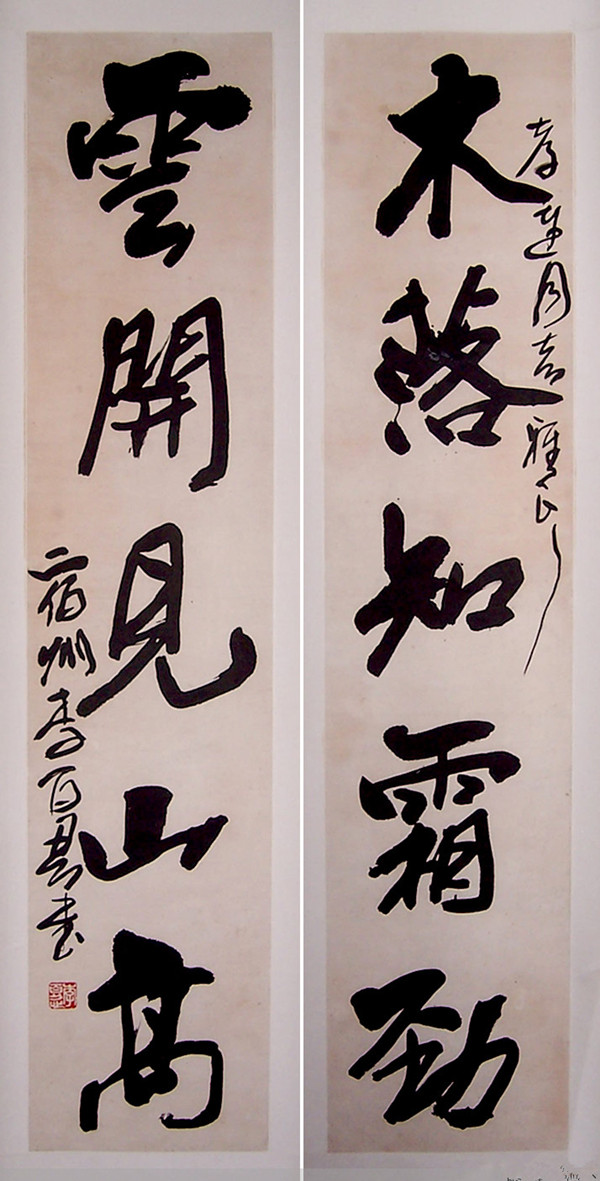 木落知霜勁
雲開見山高
宿州李百忍書